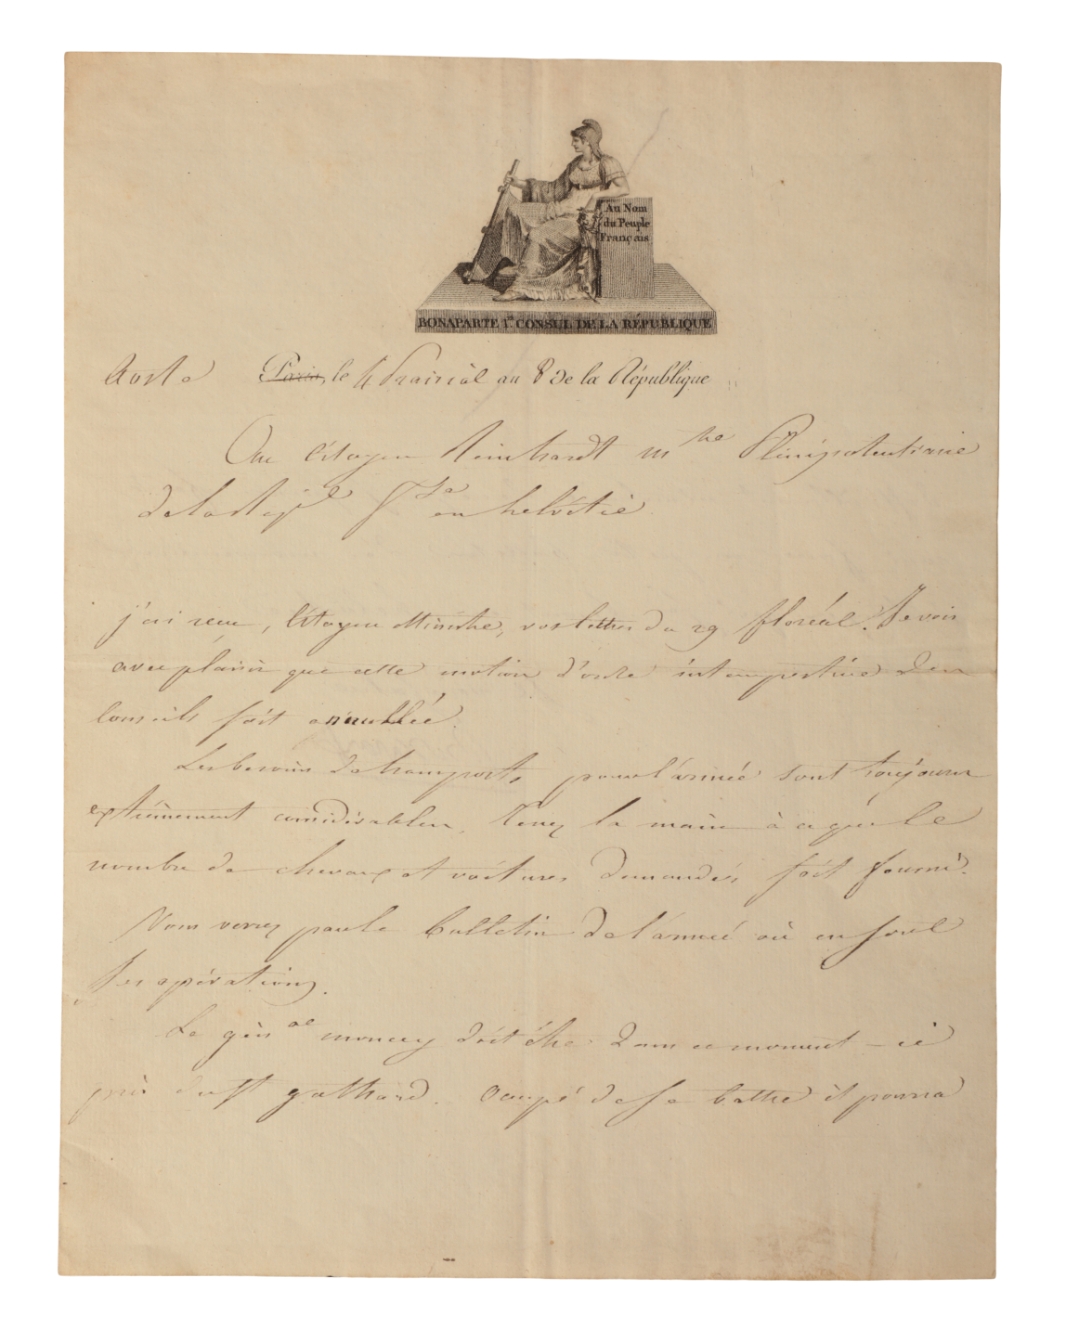 Au Nom
du Peuple
Français
BONAPARTE 1er CONSUL DE LA RÉPUBLIQUE
Aoste Paris, le 4 Prairial an 8 de la République
Au Citoyen Reinhardt mtre Plénipotentiaire
de la Fse en helvétie.
j'ai reçu, Citoyen Ministre, vos lettres du 29 floréal. Je vois
avec plaisir que cette motion d'ordre intempestive des
Conseils soit annullée.
Les besoins de transports pour l'armée sont toujours
extrêmement considérables. Tenez la main à ce que le
nombre de chevaux et voitures demandés soit fourni.
Vous verrez par le bulletin de l'armée où en sont
ses opérations.
Le génal moncey doit être dans ce moment-ci
près du St gothard. Occupé de se battre il pourra